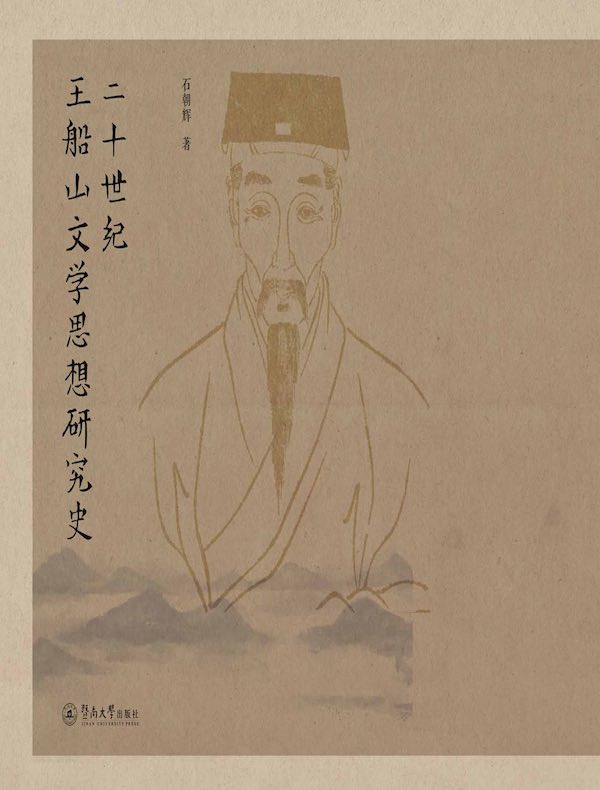 二十世纪
王船山文学思想研究史
石朝辉 著
暨南大學出版社
JINAN UNIVERSITY PRESS